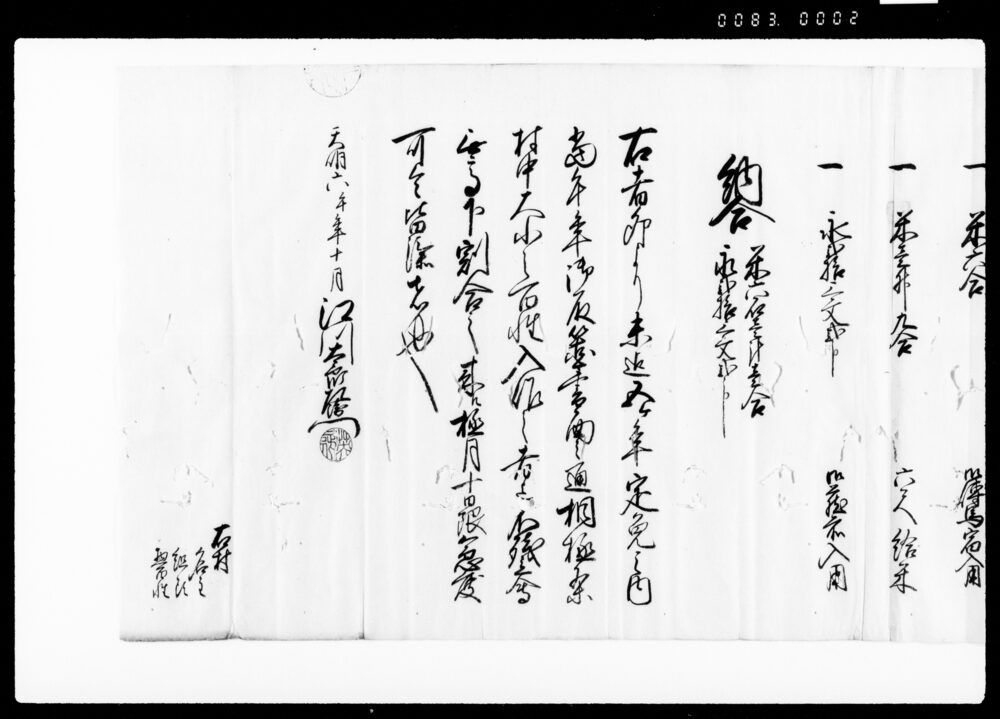 0083. 0002
一 米六合 御傳馬宿入用
一 米三升九合 六尺給米
一 永拾三文 御蔵前入用
納合 米六石三斗壱合
永拾三文
右者卯より未迄五ヶ年定免之内
当年季御取箇書面之通相極条
村中大小之百姓入作之者迄不残立会
無高下割合之来ル極月十日限急度
可令皆済者也
天明六午年十月 江川太郎左衛門
右村
名主
組頭
惣百姓